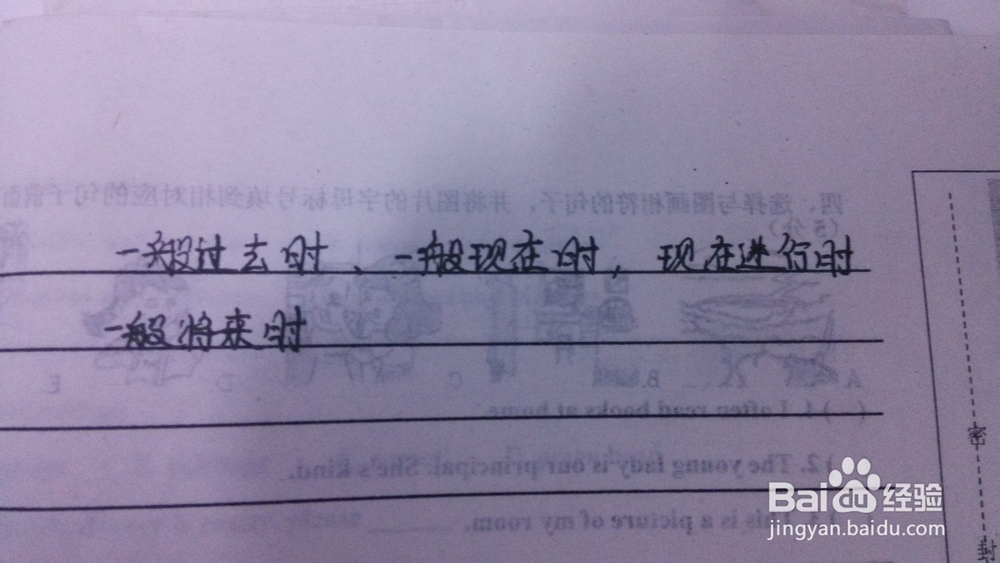 四、选择与图画相符的句子，并将图片的字母标号填到相对应的句子前面
（5分）
一般过去时、一般现在时，现在进行时
一般将来时
A B C D E
( )1. I often read books at home.
)2. The young lady is our principal. She's kind.
This is a picture of my room.
密
封
Baidu经验
jingyan.baidu.com